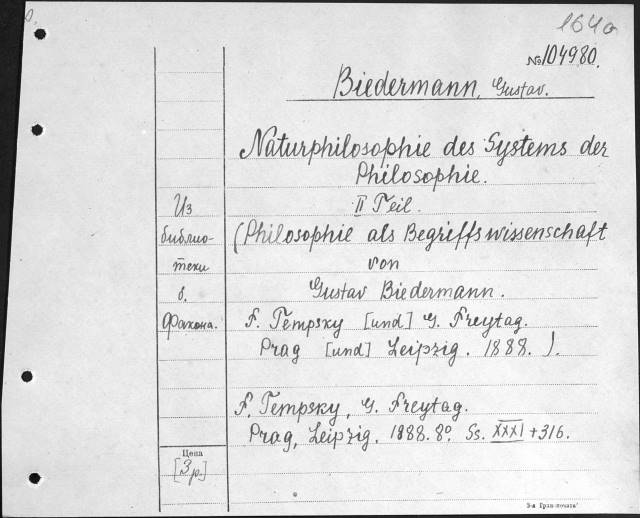 164a
№104980.
Biedermann, Gustav.
Naturphilosophie des Systems der
Philosophie.
II Teil.
(Philosophie als Begriffswissenschaft
von
Gustav Biedermann.
F. Tempsky [und] G. Freytag.
Prag [und] Leipzig. 1888.).
Из
библио-
теки
б.
Фахона.
F. Tempsky, G. Freytag.
Prag, Leipzig. 1888. 8º. Ss. XXXI + 316.
Цена
[3 р.]